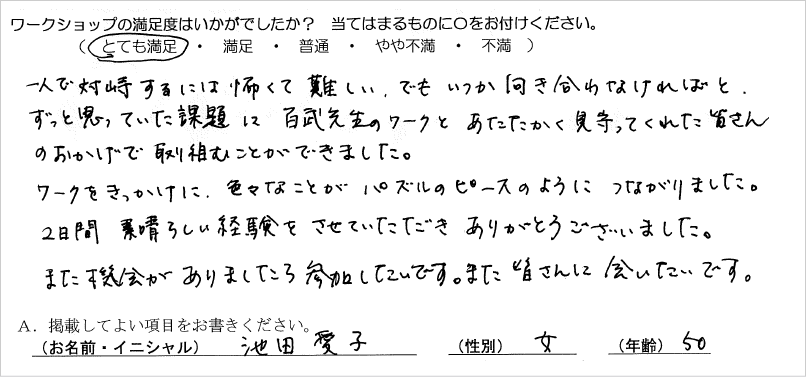 ワークショップの満足度はいかがでしたか？　当てはまるものに○をお付けください。
（　とても満足　・　満足　・　普通　・　やや不満　・　不満　）
一人で対峙するには怖くて難しい、でもいつか向き合わなければと、
ずっと思っていた課題に百武先生のワークとあたたかく見守ってくれた皆さん
のおかげで取り組むことができました。
ワークをきっかけに、色々なことがパズルのピースのようにつながりました。
2日間素晴らしい経験をさせていただきありがとうございました。
また機会がありましたら参加したいです。また皆さんに会いたいです。
A．掲載してよい項目をお書きください。
（お名前・イニシャル）　池田愛子　（性別）　女　（年齢）　50